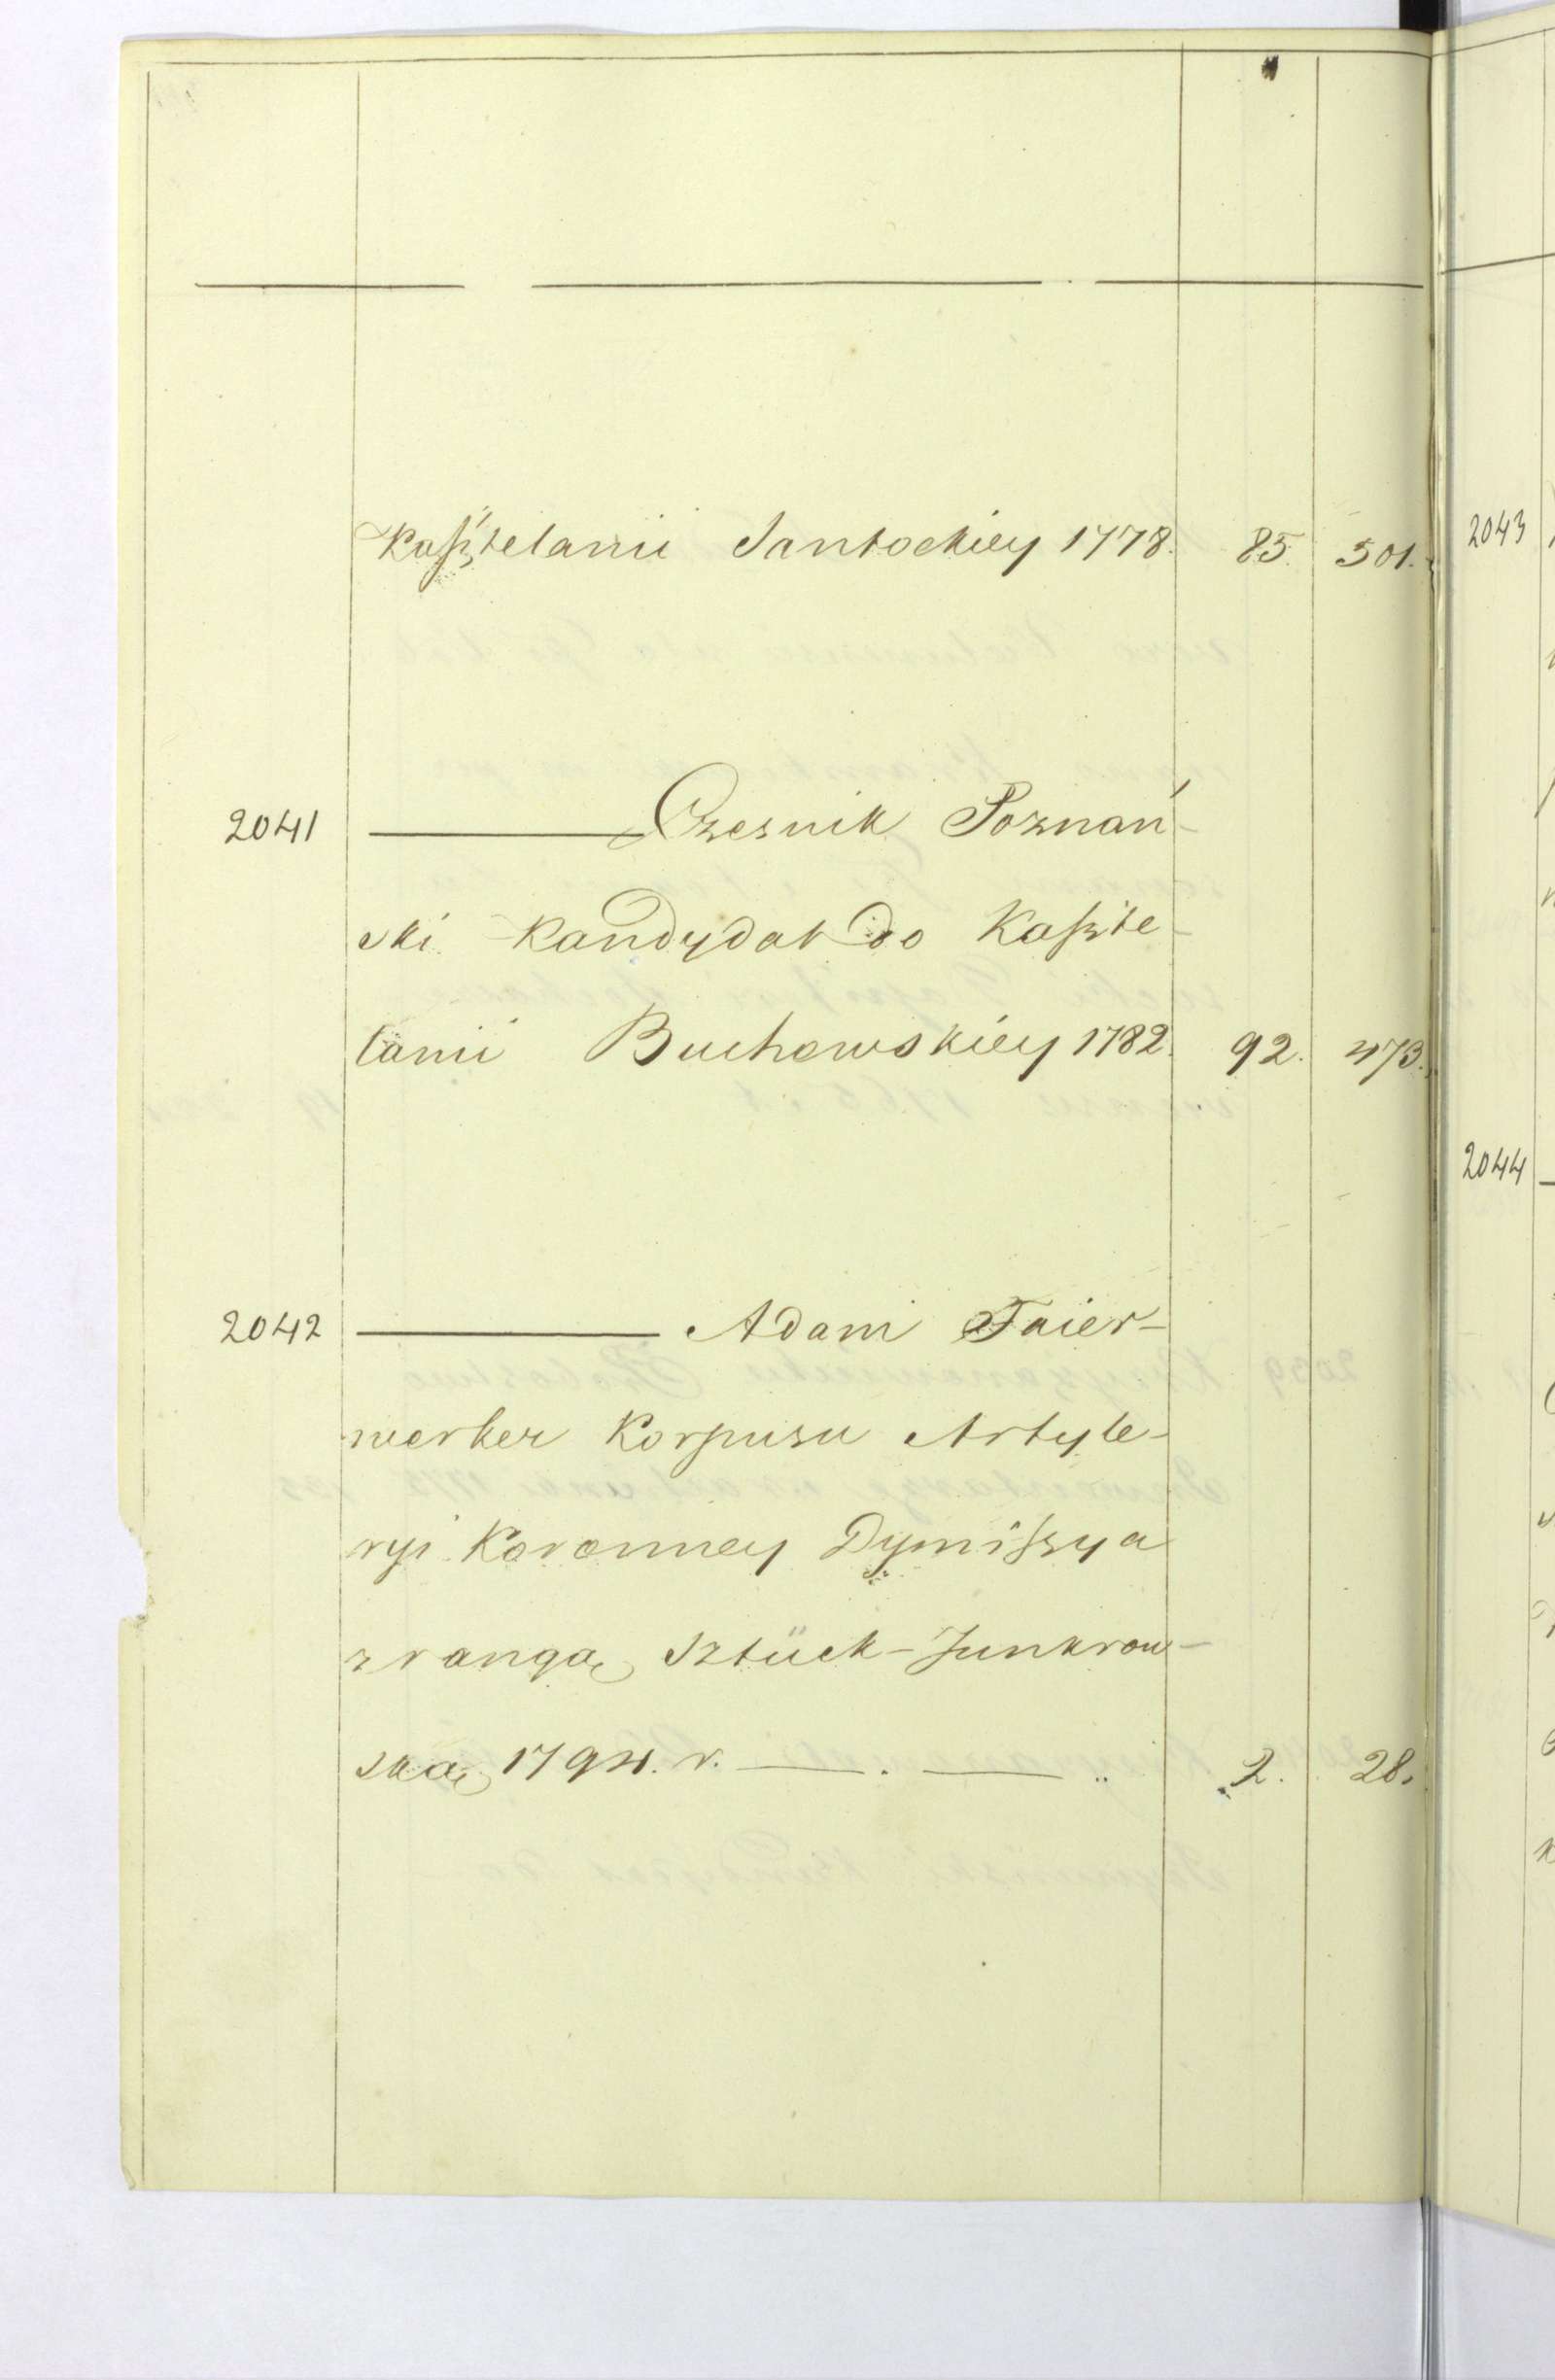 Kasztelanii Santockiey 1778. 85. 501.
2041 ——— Czesnik Poznań-
ski Kandydat do Kaszte-
lanii Buchowskiey 1782. 92. 473.
2042 ——— Adam Faier-
werker Korpusu Artyle-
ryi Koronney Dymissya
z rangą Sztück-Junkrow-
ską 1794. r. ——— . ——— „ 2. 28.
2043
2044